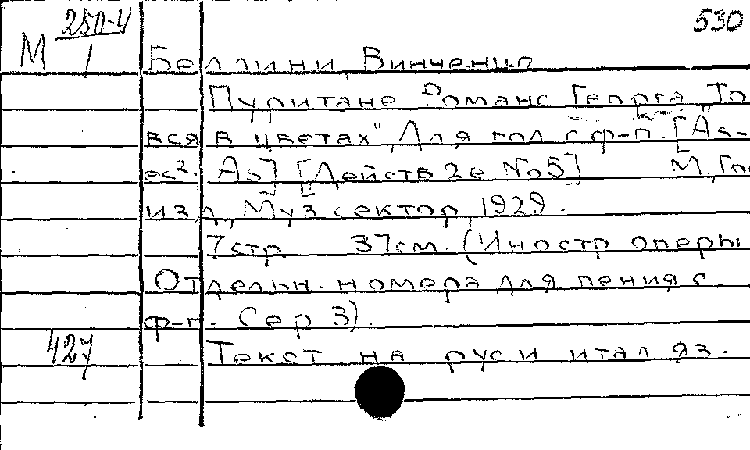 250-4 530
М 1
Беллини, Винченцо
Пуритане Романс Георга То
вся в цветах", Для гол. с ф-п. [As-
es². As] [Действ 2е No5] М, Гос
изд, Муз сектор, 1929.
7 стр 37 см. (Иностр оперы
Отдельн. номера для пения с
ф-п. Сер 3).
427 Текст на рус и итал яз.